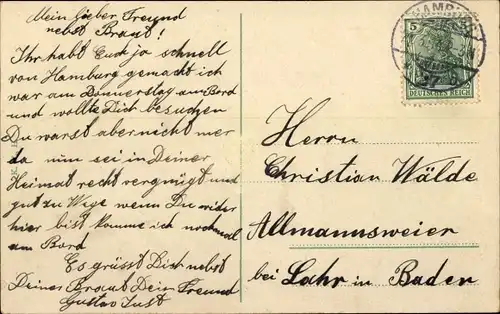 Mein lieber Freund
nebst Braut!
Ihr habt Euch ja schnell
von Hamburg gemacht ich
war am Donnerstag am Bord
und wollte Dich besuchen
Du warst aber nicht mer
da nun sei in Deiner
Heimat recht vergnügt und
gut zu Wige wenn Du wider
hier bist komme ich nochmal
am Bord
Es grüsst Dich nebst
Deiner Braut Dein Freund
Gustav Just
5
DEUTSCHES REICH
HAMBURG
Herrn
Christian Wälde
Allmannsweier
bei Lahr in Baden